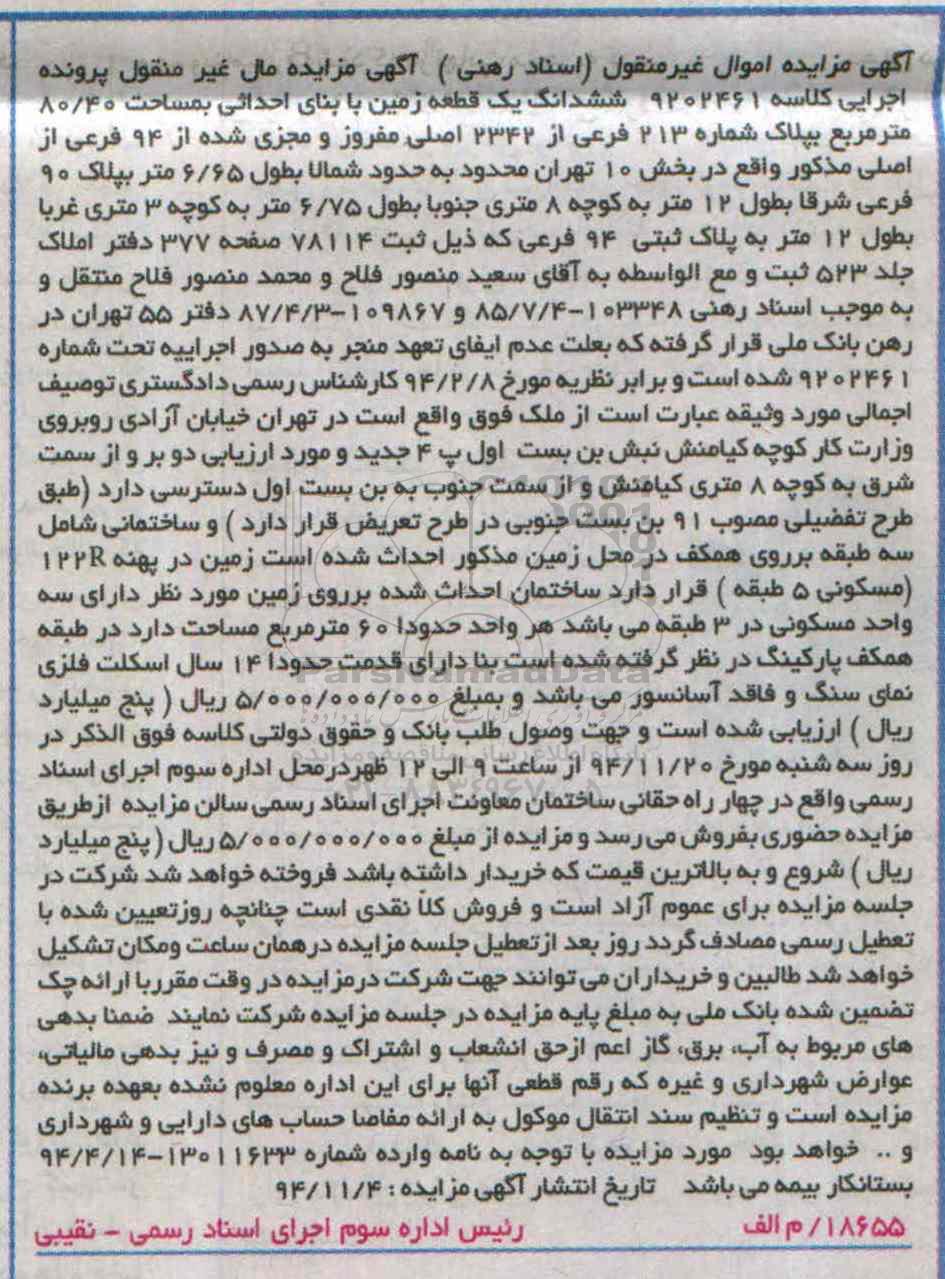 آگهی مزایده اموال غیرمنقول (اسناد رهنی) آگهی مزایده مال غیر منقول پرونده
اجرایی کلاسه ۹۲۰۲۴۶۱ ششدانگ یک قطعه زمین با بنای احداثی بمساحت ۸۰/۴۰
مترمربع بپلاک شماره ۲۱۳ فرعی از ۲۳۴۲ اصلی مفروز و مجزی شده از ۹۴ فرعی از
اصلی مذکور واقع در بخش ۱۰ تهران محدود به حدود شمالا بطول ۶/۶۵ متر بپلاک ۹۰
فرعی شرقا بطول ۱۲ متر به کوچه ۸ متری جنوبا بطول ۶/۷۵ متر به کوچه ۳ متری غربا
بطول ۱۲ متر به پلاک ثبتی ۹۴ فرعی که ذیل ثبت ۷۸۱۱۴ صفحه ۳۷۷ دفتر املاک
جلد ۵۲۳ ثبت و مع الواسطه به آقای سعید منصور فلاح و محمد منصور فلاح منتقل و
به موجب اسناد رهنی ۱۰۳۳۴۸-۸۵/۷/۴ و ۱۰۹۸۶۷-۸۷/۴/۳ دفتر ۵۵ تهران در
رهن بانک ملی قرار گرفته که بعلت عدم ایفای تعهد منجر به صدور اجراییه تحت شماره
۹۲۰۲۴۶۱ شده است و برابر نظریه مورخ ۹۴/۲/۸ کارشناس رسمی دادگستری توصیف
اجمالی مورد وثیقه عبارت است از ملک فوق واقع است در تهران خیابان آزادی روبروی
وزارت کار کوچه کیامنش نبش بن بست اول پ ۴ جدید و مورد ارزیابی دو بر و از سمت
شرق به کوچه ۸ متری کیامنش و از سمت جنوب به بن بست اول دسترسی دارد (طبق
طرح تفضیلی مصوب ۹۱ بن بست جنوبی در طرح تعریض قرار دارد) و ساختمانی شامل
سه طبقه برروی همکف در محل زمین مذکور احداث شده است زمین در پهنه ۱۲۲R
(مسکونی ۵ طبقه) قرار دارد ساختمان احداث شده برروی زمین مورد نظر دارای سه
واحد مسکونی در ۳ طبقه می باشد هر واحد حدودا ۶۰ مترمربع مساحت دارد در طبقه
همکف پارکینگ در نظر گرفته شده است بنا دارای قدمت حدودا ۱۴ سال اسکلت فلزی
نمای سنگ و فاقد آسانسور می باشد و بمبلغ ۵/۰۰۰/۰۰۰/۰۰۰ ریال (پنج میلیارد
ریال) ارزیابی شده است و جهت وصول طلب بانک و حقوق دولتی کلاسه فوق الذکر در
روز سه شنبه مورخ ۹۴/۱۱/۲۰ از ساعت ۹ الی ۱۲ ظهردرمحل اداره سوم اجرای اسناد
رسمی واقع در چهار راه حقانی ساختمان معاونت اجرای اسناد رسمی سالن مزایده ازطریق
مزایده حضوری بفروش می رسد و مزایده از مبلغ ۵/۰۰۰/۰۰۰/۰۰۰ ریال (پنج میلیارد
ریال) شروع و به بالاترین قیمت که خریدار داشته باشد فروخته خواهد شد شرکت در
جلسه مزایده برای عموم آزاد است و فروش کلاً نقدی است چنانچه روزتعیین شده با
تعطیل رسمی مصادف گردد روز بعد ازتعطیل جلسه مزایده درهمان ساعت ومکان تشکیل
خواهد شد طالبین و خریداران می توانند جهت شرکت درمزایده در وقت مقرربا ارائه چک
تضمین شده بانک ملی به مبلغ پایه مزایده در جلسه مزایده شرکت نمایند ضمنا بدهی
های مربوط به آب، برق، گاز اعم ازحق انشعاب و اشتراک و مصرف و نیز بدهی مالیاتی،
عوارض شهرداری و غیره که رقم قطعی آنها برای این اداره معلوم نشده بعهده برنده
مزایده است و تنظیم سند انتقال موکول به ارائه مفاصا حساب های دارایی و شهرداری
و .. خواهد بود مورد مزایده با توجه به نامه وارده شماره ۱۳۰۱۱۶۳۳-۹۴/۴/۱۴
بستانکار بیمه می باشد تاریخ انتشار آگهی مزایده: ۹۴/۱۱/۴
۱۸۶۵۵/م الف رئیس اداره سوم اجرای اسناد رسمی - نقیبی
ParsNamadData